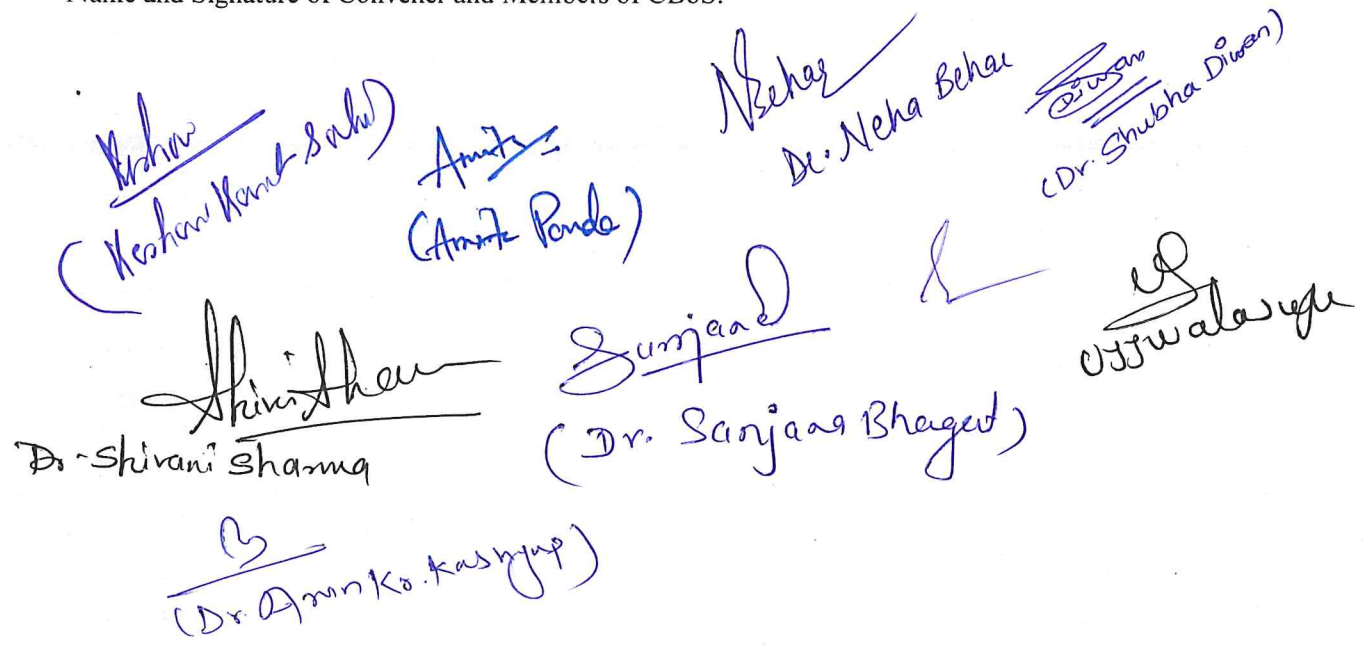 Name and Signature of Convener and Members of CBoS:
Keshav
(Keshav Kant Sahu)
Amita
(Amita Panda)
NBehar
Dr. Neha Behar
Diwan
(Dr. Shubha Diwan)
Dr. Shivani Sharma
Sanjana
(Dr. Sanjana Bhagat)
Ujjwala
(Dr. Arun Kr. Kashyap)